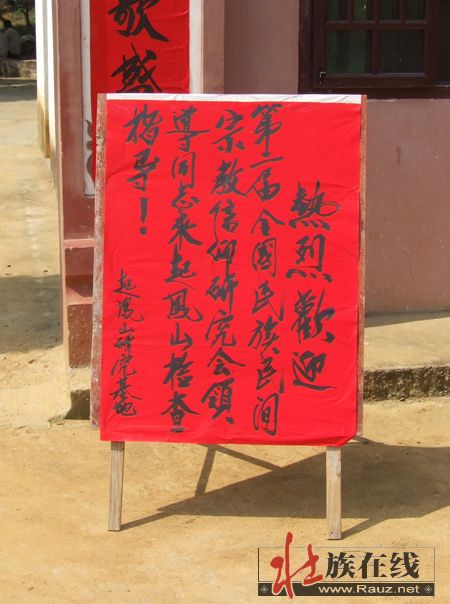 熱烈歡迎
第二届全國民族民间
宗教信仰研究会領
導同志来起鳳山检查
指导！
起鳳山研究基地
壮族在线
www.Rauz.net